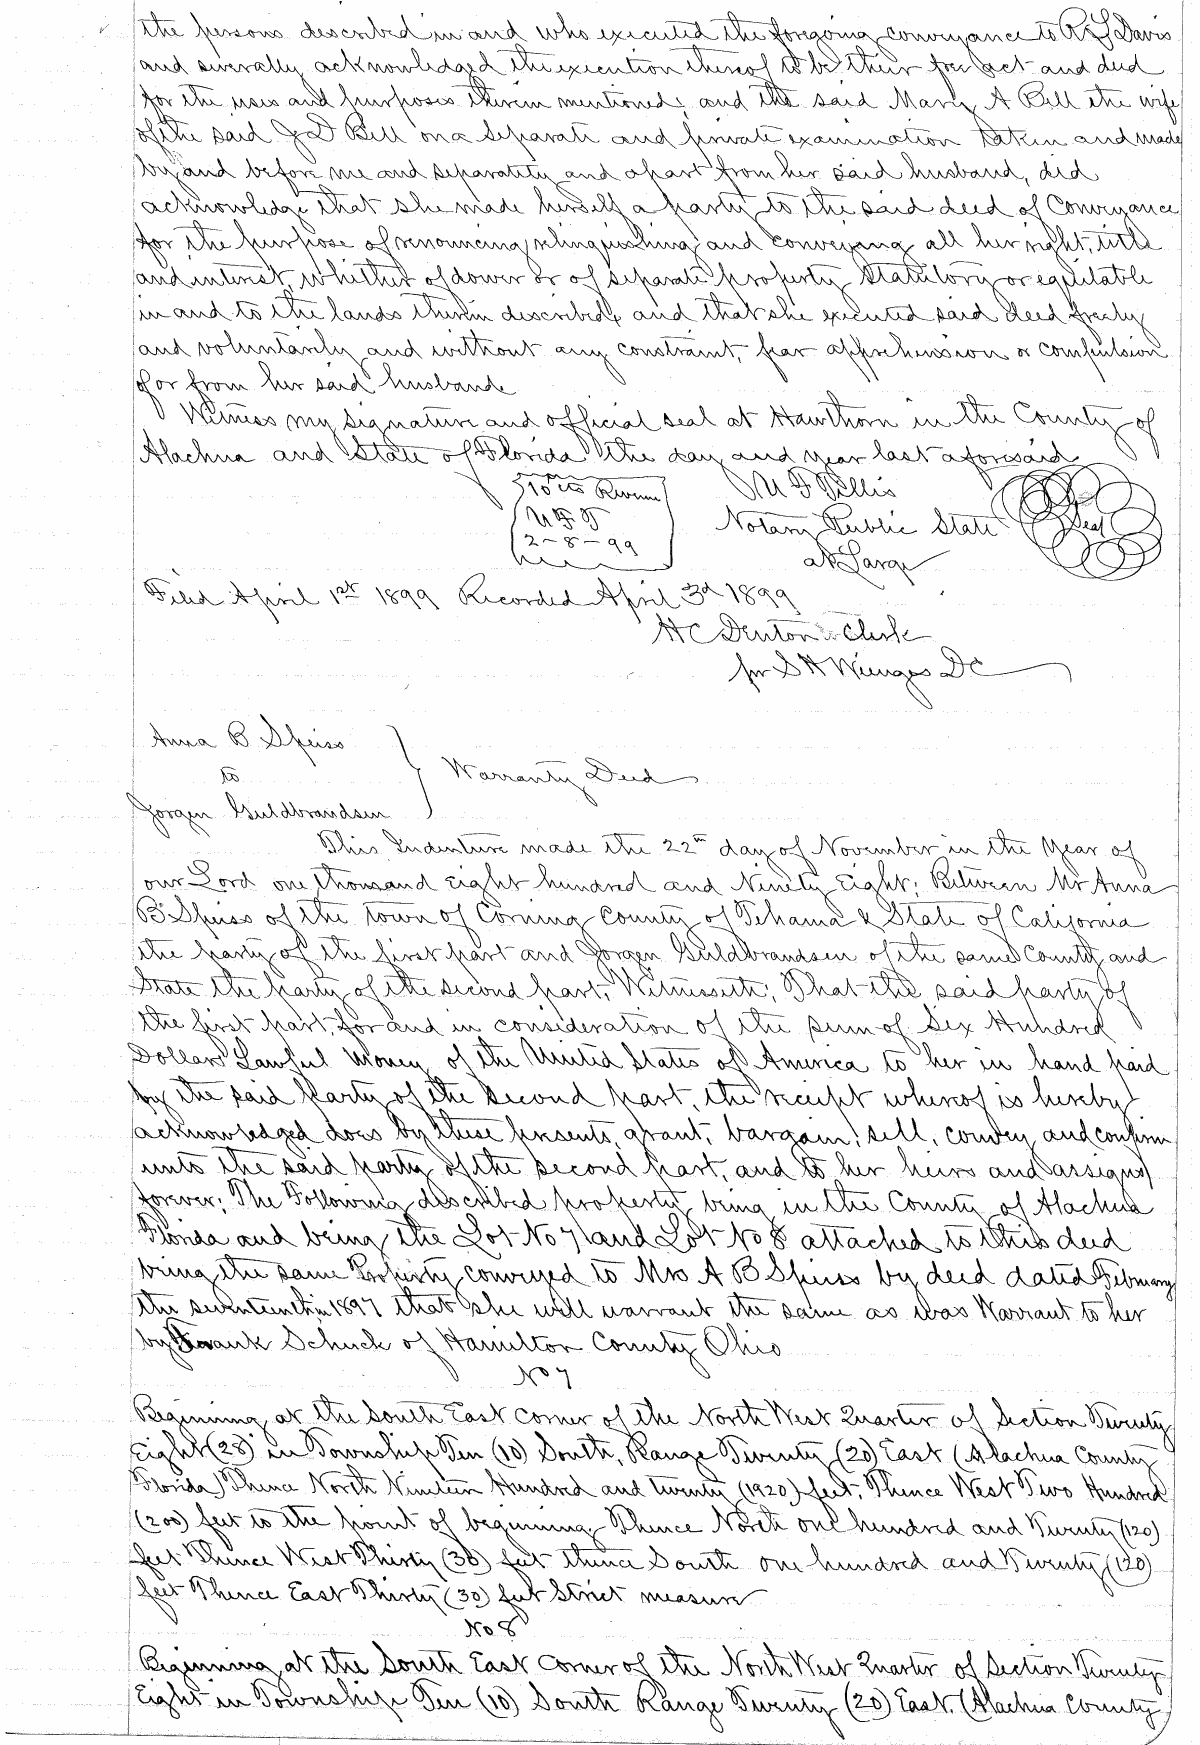 the persons described in and who executed the foregoing conveyance to R L Davis
and severally acknowledged the execution thereof to be their free act and deed
for the uses and purposes therein mentioned; and the said Mary A Bell the wife
of the said J D Bell on a separate and private examination taken and made
by and before me and separately and apart from her said husband, did
acknowledge that she made herself a party to the said deed of Conveyance
for the purpose of renouncing, relinquishing and conveying all her right, title
and interest, whether of dower or of separate property, statutory or equitable
in and to the lands therein described, and that she executed said deed freely
and voluntarily and without any constraint, fear apprehension or compulsion
of or from her said husband
Witness my signature and official seal at Hawthorn in the County of
Alachua and State of Florida the day and year last aforesaid
10 cts Revenue
2-8-99
Notary Public State
at Large
Seal
Filed April 1st 1899 Recorded April 3d 1899
H C Denton Clerk
per S H Wienges D C
Anna B Speiss
to
Jorgen Guldbrandsen
Warranty Deed
This Indenture made the 22nd day of November in the Year of
our Lord one thousand Eight hundred and Ninety Eight; Between Mr Anna
B Speiss of the town of Corning County of Tehama & State of California
the party of the first part and Jorgen Guldbrandsen of the same County and
State the party of the second part, Witnesseth; That the said party of
the first part, for and in consideration of the sum of Six Hundred
Dollars Lawful Money of the United States of America to her in hand paid
by the said Party of the second part, the receipt whereof is hereby
acknowledged does by these presents, grant, bargain, sell, convey and confirm
unto the said party of the second part, and to her heirs and assigns
forever; The Following described property being in the County of Alachua
Florida and being the Lot No 7 and Lot No 8 attached to this deed
being the same Property conveyed to Mrs A B Speiss by deed dated February
the seventeenth in 1897 that she will warrant the same as was Warrant to her
by Frank Schuck of Hamilton County Ohio
No 7
Beginning at the South East corner of the North West Quarter of Section Twenty
Eight (28) in Township Ten (10) South, Range Twenty (20) East (Alachua County
Florida) Thence North Nineteen Hundred and twenty (1920) feet, Thence West Two Hundred
(200) feet to the point of beginning Thence North one hundred and Twenty (120)
feet Thence West Thirty (30) feet thence South one hundred and Twenty (120)
feet Thence East Thirty (30) feet Strict measure
No 8
Beginning at the South East Corner of the North West Quarter of Section Twenty
Eight in Township Ten (10) South Range Twenty (20) East, (Alachua County